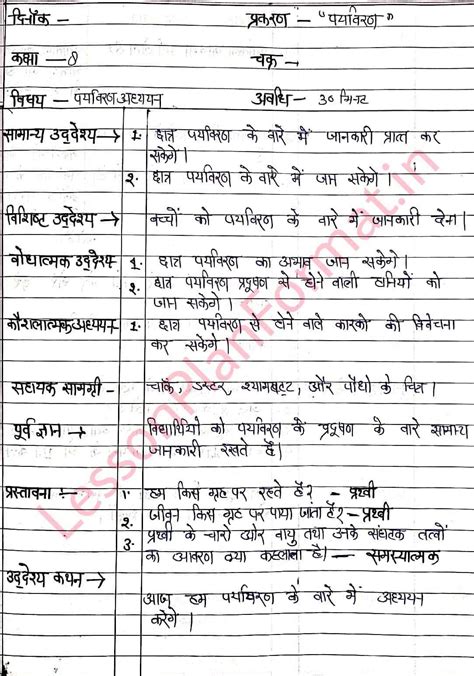 दिनाँक -
प्रकरण - "पर्यावरण"
कक्षा - 8
चक्र →
विषय - पर्यावरण अध्ययन
अवधि - 30 मिनट
सामान्य उद्देश्य → 1. छात्र पर्यावरण के बारे में जानकारी प्राप्त कर
सकेंगे।
2. छात्र पर्यावरण के बारे में जान सकेंगे।
विशिष्ट उद्देश्य → बच्चों को पर्यावरण के बारे में जानकारी देना।
बोधात्मक उद्देश्य 1. छात्र पर्यावरण का अभाव जान सकेंगे।
2. छात्र पर्यावरण प्रदूषण से होने वाली हानियों को
जान सकेंगे।
कौशलात्मक अध्ययन 1. छात्र पर्यावरण से होने वाले कारको की विवेचना
कर सकेंगे।
सहायक सामग्री - चॉक, डस्टर, श्यामपट्ट, और पौधो के चित्र।
पूर्व ज्ञान → विद्यार्थियों को पर्यावरण के प्रदूषण के बारे सामान्य
जानकारी रखते है।
प्रस्तावना :- 1. हम किस ग्रह पर रहते हैं? - प्रथ्वी
2. जीवन किस ग्रह पर पाया जाता है? - प्रथ्वी
3. प्रथ्वी के चारो और वायु तथा अनके संघटक तत्वों
का आवरण क्या कहलाता है। - समस्यात्मक
उद्देश्य कथन →
आज हम पर्यावरण के बारे में अध्ययन
करेंगे।
LessonPlanFormat.in